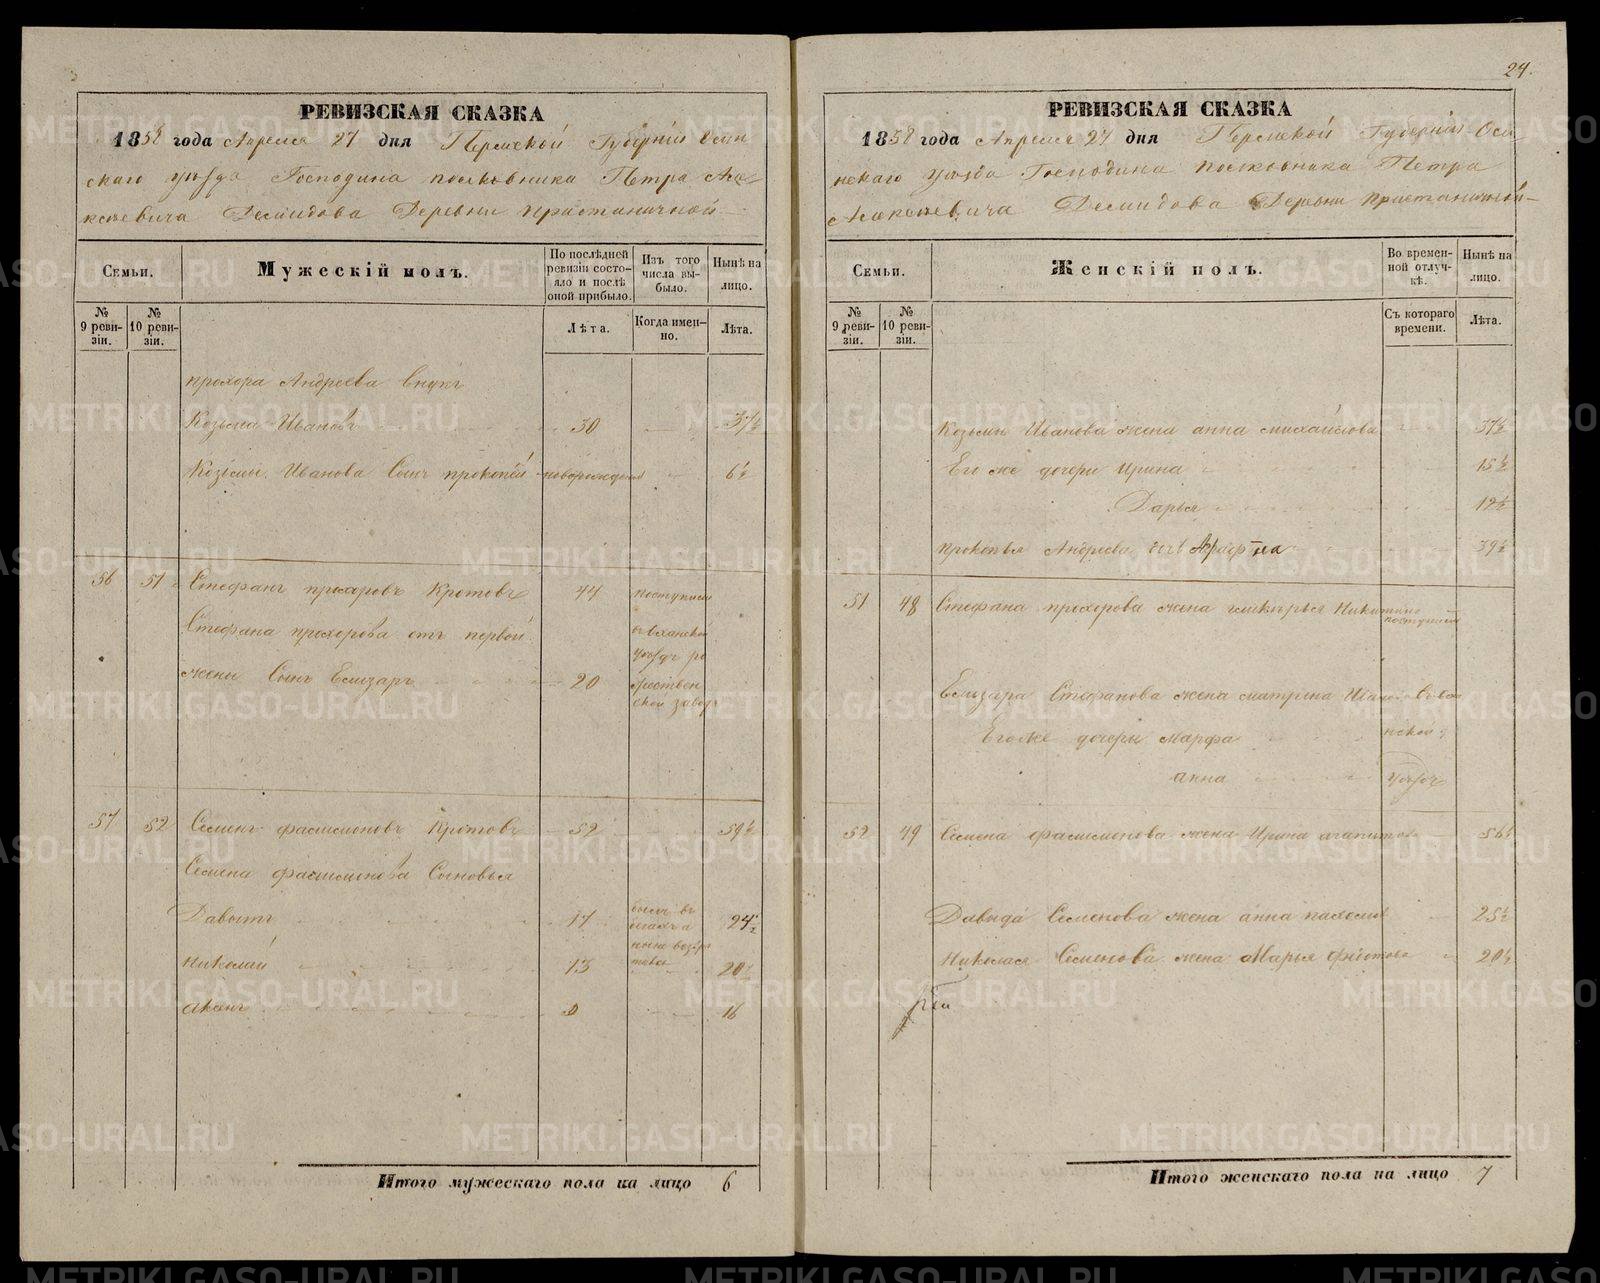 24.
РЕВИЗСКАЯ СКАЗКА
1858 года Апреля 27 дня Пермской Губерніи Осин
скаго уѣзда Господина полковника Петра Але
ксѣевича Демидова Деревни Пристаничной
Семьи.
Мужескій полъ.
По послѣдней
ревизіи состо-
яло и послѣ
оной прибыло.
Изъ того
числа вы-
было.
Нынѣ на
лицо.
№
9 реви-
зіи.
№
10 реви-
зіи.
Лѣта.
Когда имен-
но.
Лѣта.
прохора Андреева внукъ
Козьма Ивановъ 30 37½
Козьмы Иванова Сынъ прокопей новорожденъ 6½
56 51 Стефанъ прохоровъ Кротовъ 44 поступили
Стефана прохорова отъ первой въ Оханской
уѣздъ ро
жены Сынъ Елизаръ 20 ждествен
ской заводъ
57 52 Семенъ филимоновъ Кротовъ 52 59½
Семена филимонова Сыновья
Давыдъ 17 былъ въ бегахъ а ныне возвра 24½
Николай 13 20½
16
Итого мужескаго пола на лицо 6
РЕВИЗСКАЯ СКАЗКА
1858 года Апреля 27 дня Пермской Губерніи Оси
нскаго уѣзда Господина полковника Петра
Алексѣевича Демидова Деревни Пристаничной
Семьи.
Женскій полъ.
Во времен-
ной отлуч-
кѣ.
Нынѣ на
лицо.
№
9 реви-
зіи.
№
10 реви-
зіи.
Съ котораго
времени.
Лѣта.
Козьмы Иванова жена анна михайлова 37½
Его же дочери Ирина 15½
Дарья 12½
прокопья Андреева 39½
51 48 Стефана прохорова жена Никитина
поступили
Елизара Стефанова жена матрена Иванова въ Оха
Его же дочери марфа нской
анна уѣздъ
52 49 Семена филимонова жена Ирина агапитова 56½
Давыда Семенова жена анна пахомова 25½
Николая Семенова жена Марья 20½
Итого женскаго пола на лицо 7
METRIKI.GASO-URAL.RU